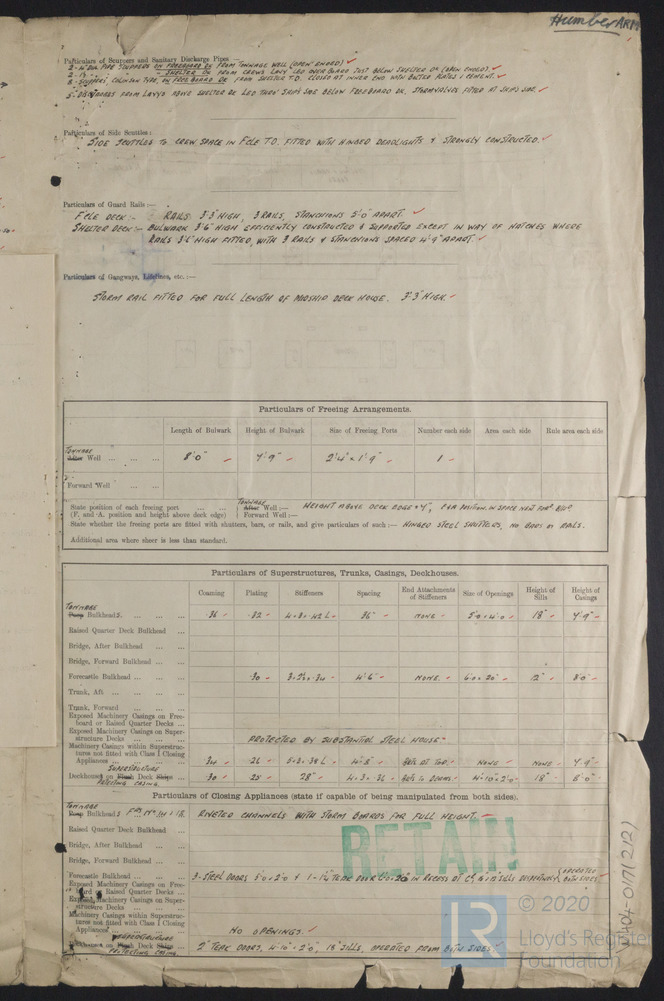 Humber Arm
Particulars of Scuppers and Sanitary Discharge Pipes :—
2 - 4" DIA. PIPE SCUPPERS ON FREEBOARD DK FROM TONNAGE WELL (OPEN ENDED)
SHELTER DK FROM CREWS LAVY LED OVERBOARD JUST BELOW SHELTER DK (OPEN ENDED).
5 - DISCHARGES FROM LAVYS ABOVE SHELTER DK LED THRO' SHIPS SIDE BELOW FREEBOARD DK. STORMVALVES FITTED AT SHIPS SIDE.
Particulars of Side Scuttles :
SIDE SCUTTLES TO CREW SPACE IN F'CLE T.D. FITTED WITH HINGED DEADLIGHTS & STRONGLY CONSTRUCTED.
Particulars of Guard Rails :—
F'CLE DECK :- RAILS 3'3" HIGH, 3 RAILS, STANCHIONS 5'0" APART.
SHELTER DECK :- BULWARK 3'6" HIGH EFFICIENTLY CONSTRUCTED & SUPPORTED EXCEPT IN WAY OF HATCHES WHERE
RAILS 3'6" HIGH FITTED, WITH 3 RAILS & STANCHIONS SPACED 4'9" APART.
Particulars of Gangways, Lifelines, etc. :—
STORM RAIL FITTED FOR FULL LENGTH OF MIDSHIP DECK HOUSE. 3'3" HIGH.
Particulars of Freeing Arrangements.
Length of Bulwark Height of Bulwark Size of Freeing Ports Number each side Area each side Rule area each side
TONNAGE
After Well ... ... ... 8'0" 7'9" 2'4" x 1'9" 1
Forward Well ... ...
State position of each freeing port ... ... TONNAGE After Well :— HEIGHT ABOVE DECK EDGE
(F. and A. position and height above deck edge) Forward Well :—
State whether the freeing ports are fitted with shutters, bars, or rails, and give particulars of such :— HINGED STEEL SHUTTERS, NO BARS OR RAILS.
Additional area where sheer is less than standard.
Particulars of Superstructures, Trunks, Casings, Deckhouses.
Coaming Plating Stiffeners Spacing End Attachments of Stiffeners Size of Openings Height of Sills Height of Casings
TONNAGE
Poop Bulkheads ... ... ... 36 .32 36" NONE 5'0 x 4'0 18" 7'9"
Raised Quarter Deck Bulkhead
Bridge, After Bulkhead ... ...
Bridge, Forward Bulkhead ... ...
Forecastle Bulkhead ... ... ... .30 4'6" NONE 12" 8'0"
Trunk, Aft ... ... ... ...
Trunk, Forward ... ... ...
Exposed Machinery Casings on Free-
board or Raised Quarter Decks ...
Exposed Machinery Casings on Super-
structure Decks ... ... ... PROTECTED BY SUBSTANTIAL STEEL HOUSE.
Machinery Casings within Superstruc-
tures not fitted with Class I Closing
Appliances ... ... ... .34 .26 NONE NONE 7'9"
SUPERSTRUCTURE
Deckhouses on Flush Deck Ships ... .30 .25 28" 4'10 x 2'0" 18" 8'0"
PROTECTING CASING
Particulars of Closing Appliances (state if capable of being manipulated from both sides).
TONNAGE
Poop Bulkheads RIVETED CHANNELS WITH STORM BOARDS FOR FULL HEIGHT.
Raised Quarter Deck Bulkhead
Bridge, After Bulkhead ... ...
Bridge, Forward Bulkhead ... ...
RETAIN
Forecastle Bulkhead ... 3 - STEEL DOORS 5'0 x 2'0 & 1 - TEAK DOOR IN RECESS AT SILLS RESPECTIVELY, OPERATED BOTH SIDES
Exposed Machinery Casings on Free-
board or Raised Quarter Decks ...
Exposed Machinery Casings on Super-
structure Decks ... ... ...
Machinery Casings within Superstruc-
tures not fitted with Class I Closing
Appliances ... ... NO OPENINGS.
SUPERSTRUCTURE
Deckhouses on Flush Deck Ships ... 2" TEAK DOORS, 4'10" x 2'0", 18" SILLS, OPERATED FROM BOTH SIDES
PROTECTING CASING.
© 2020
Lloyd's Register
Foundation